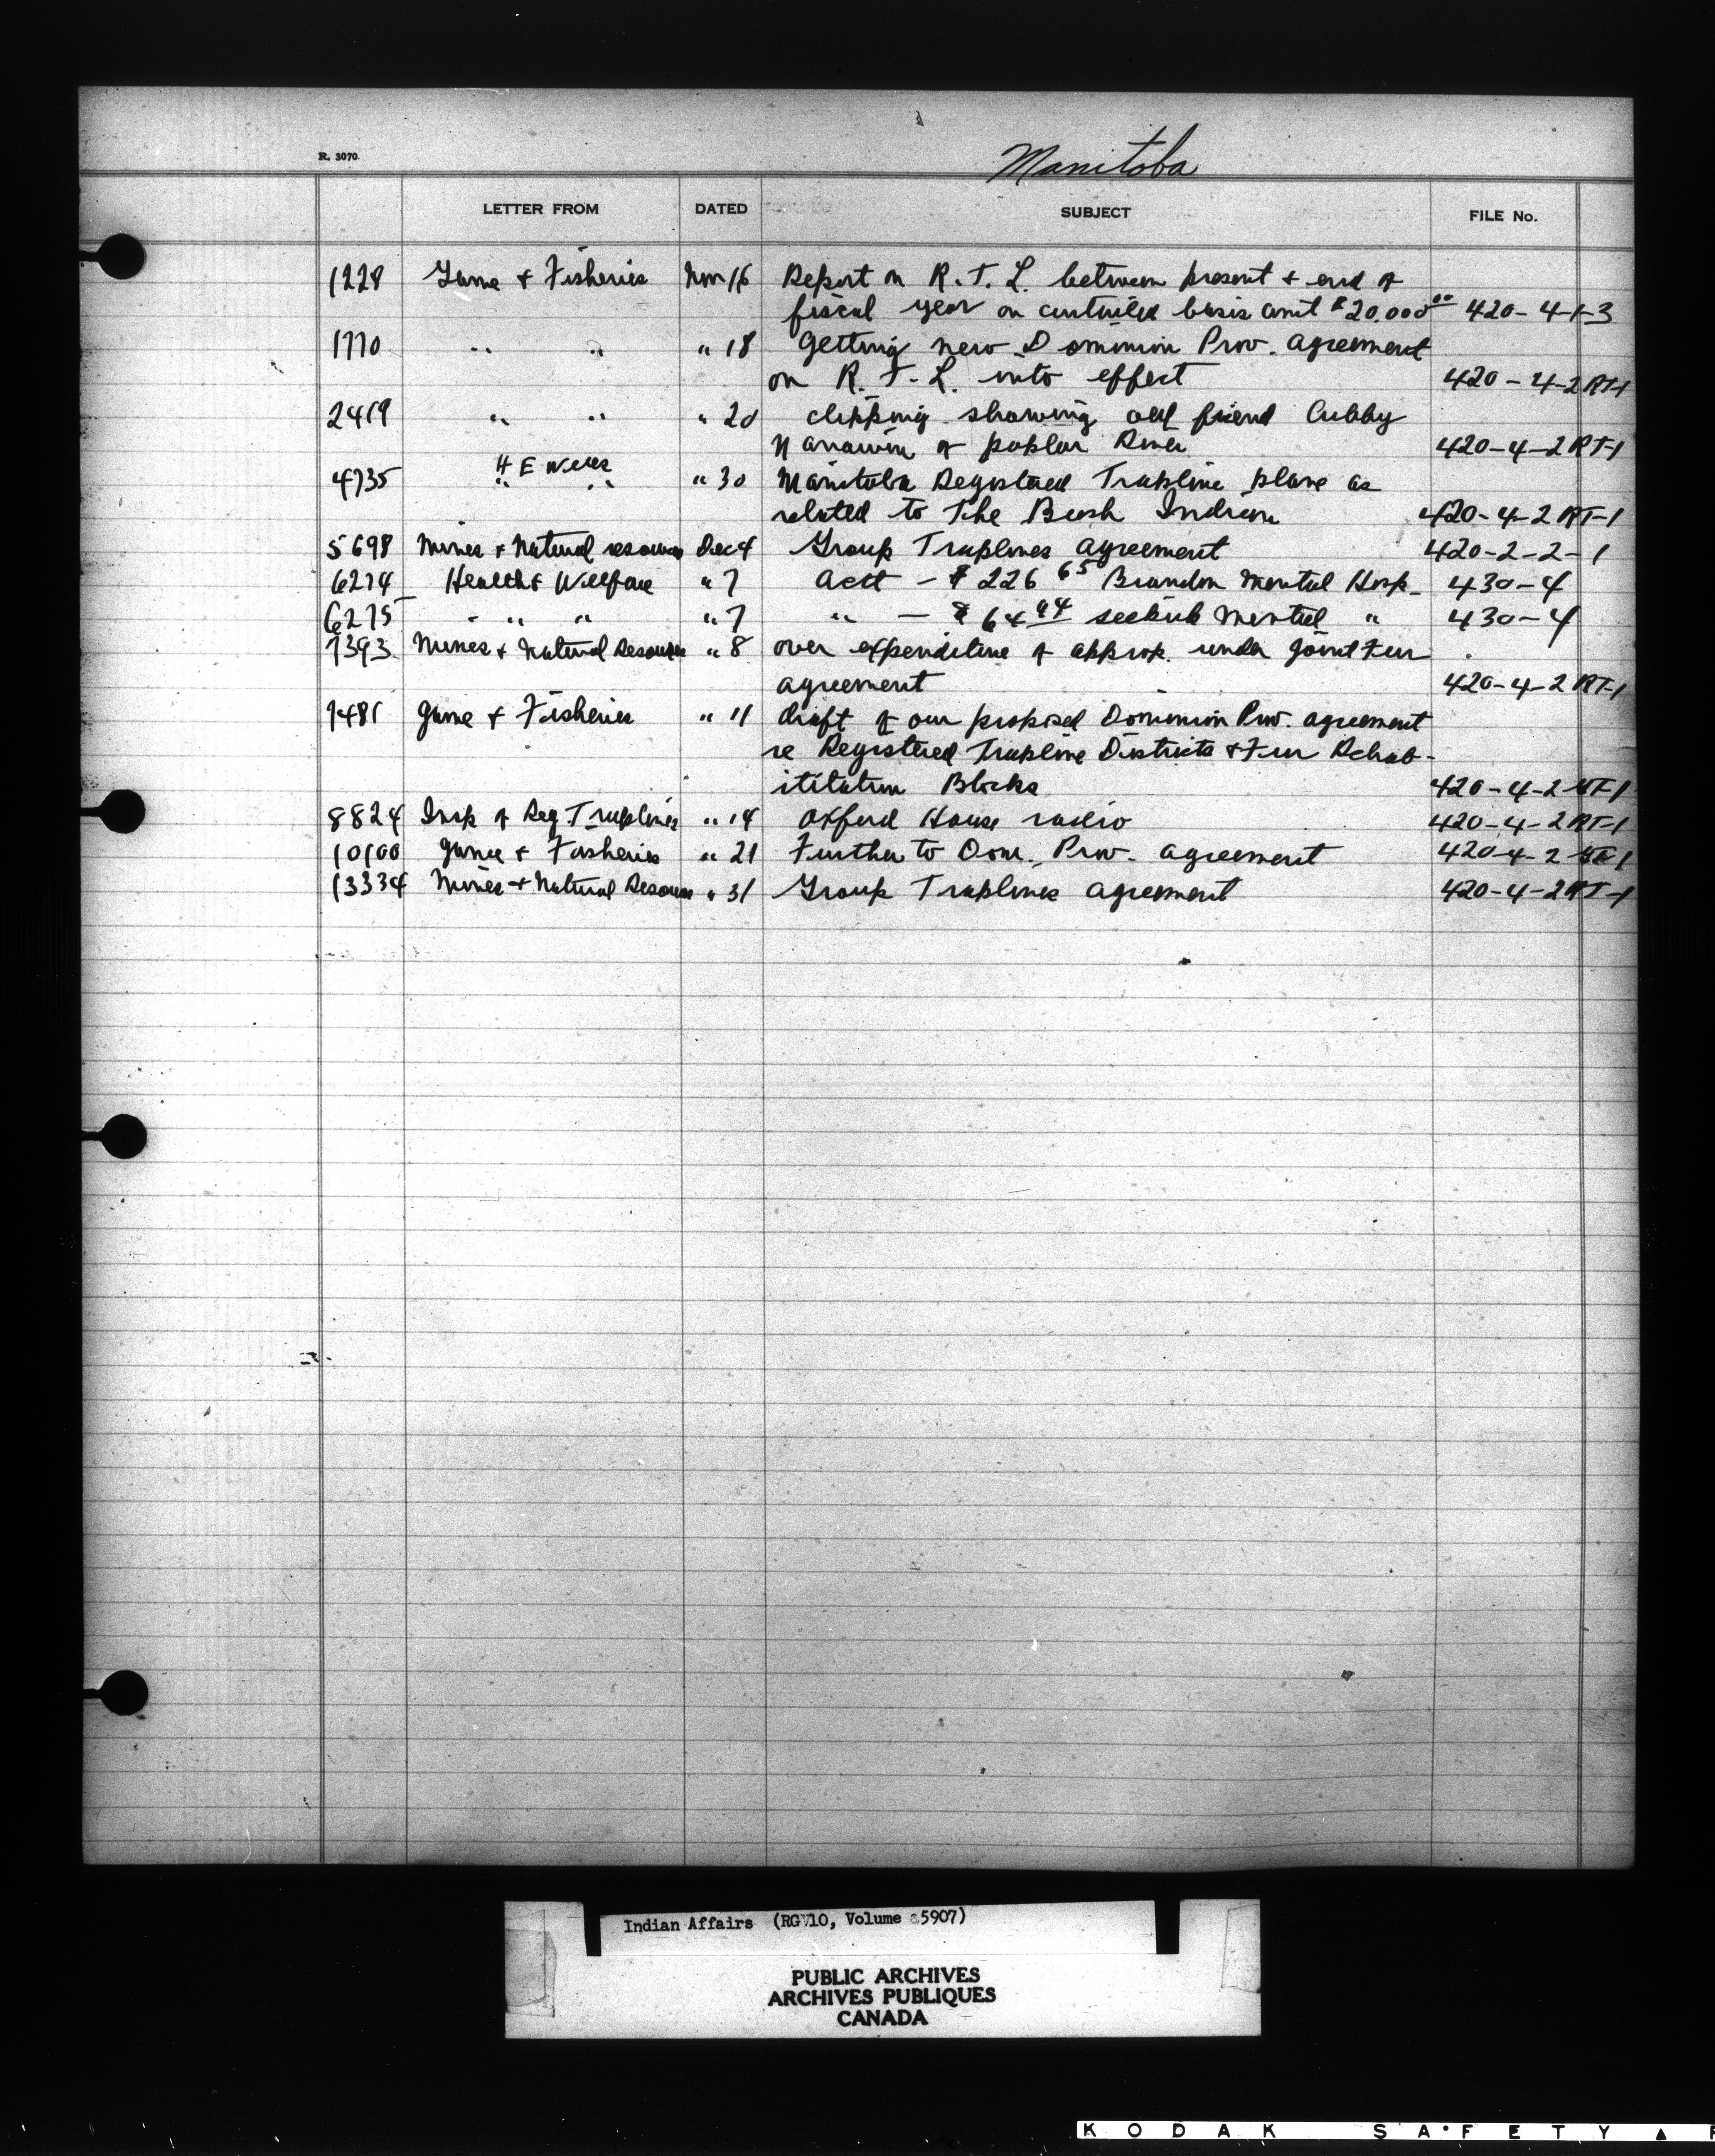 R. 3070
Manitoba
LETTER FROM DATED SUBJECT FILE No.
1228 Game & Fisheries Nov 16 Report on R. T. L. between present & end of
fiscal year on curtailed basis amt $20.000 00 420-4-1-3
1770 " " " 18 getting new Dominion Prov. agreement
on R. T. L. into effect 420-4-2 RT-1
2419 " " " 20 clipping showing old friend Cubby
of poplar River 420-4-2 RT-1
4735 H E Wells " " " 30 Manitoba Registered Trapline plane as
related to The Bush Indian 420-4-2 RT-1
5698 Mines & Natural resources Dec 4 Group Traplines agreement 420-2-2-1
6274 Health & Wellfare " 7 acct - $ 226 65 Brandon Mental Hosp. 430-4
6275 " " " 7 " - $ 64 44 Selkirk Mental " 430-4
7393 Mines & Natural Resources " 8 over expenditure of approp. under joint Fur
agreement 420-4-2 RT-1
7481 Game & Fisheries " 11 draft of our proposed Dominion Prov. agreement
re Registered Trapline Districts & Fur Rehab-
ilitation Blocks 420-4-2 RT-1
8824 Insp of Reg. Traplines " 14 Oxford House radio 420-4-2 RT-1
10100 Game & Fisheries " 21 Further to Dom. Prov. agreement 420-4-2 RT-1
13334 Mines & Natural Resources " 31 Group Traplines agreement 420-4-2 RT-1
Indian Affairs (RG 10, Volume 5907)
PUBLIC ARCHIVES
ARCHIVES PUBLIQUES
CANADA
KODAK SAFETY